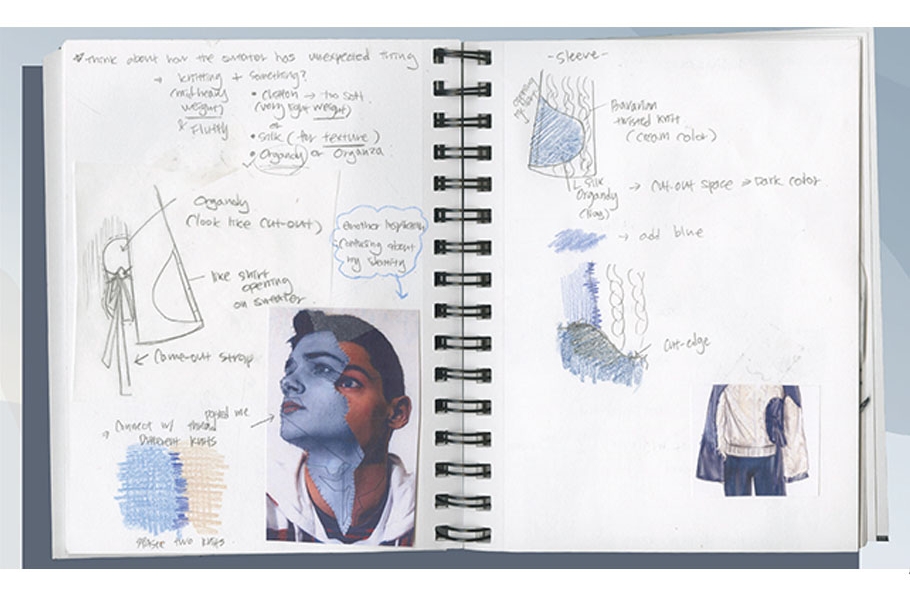 * Think about how the sweater has unexpected thing
→ knitting + something?
(mid heavy weight)
& Fluffy
• Cotton → too soft
(very light weight)
or
• Silk (for texture)
• Organdy or Organza
Organdy
(look like cut-out)
like shirt
opening
on sweater
← Come-out strap
another
confusing about
my identity
Connect w/ thread
Different knits
two knits
-Sleeve-
Bavarian
twisted knit
(cream color)
Silk
Organdy
→ cut-out space → Dark color
→ add blue
cut-edge